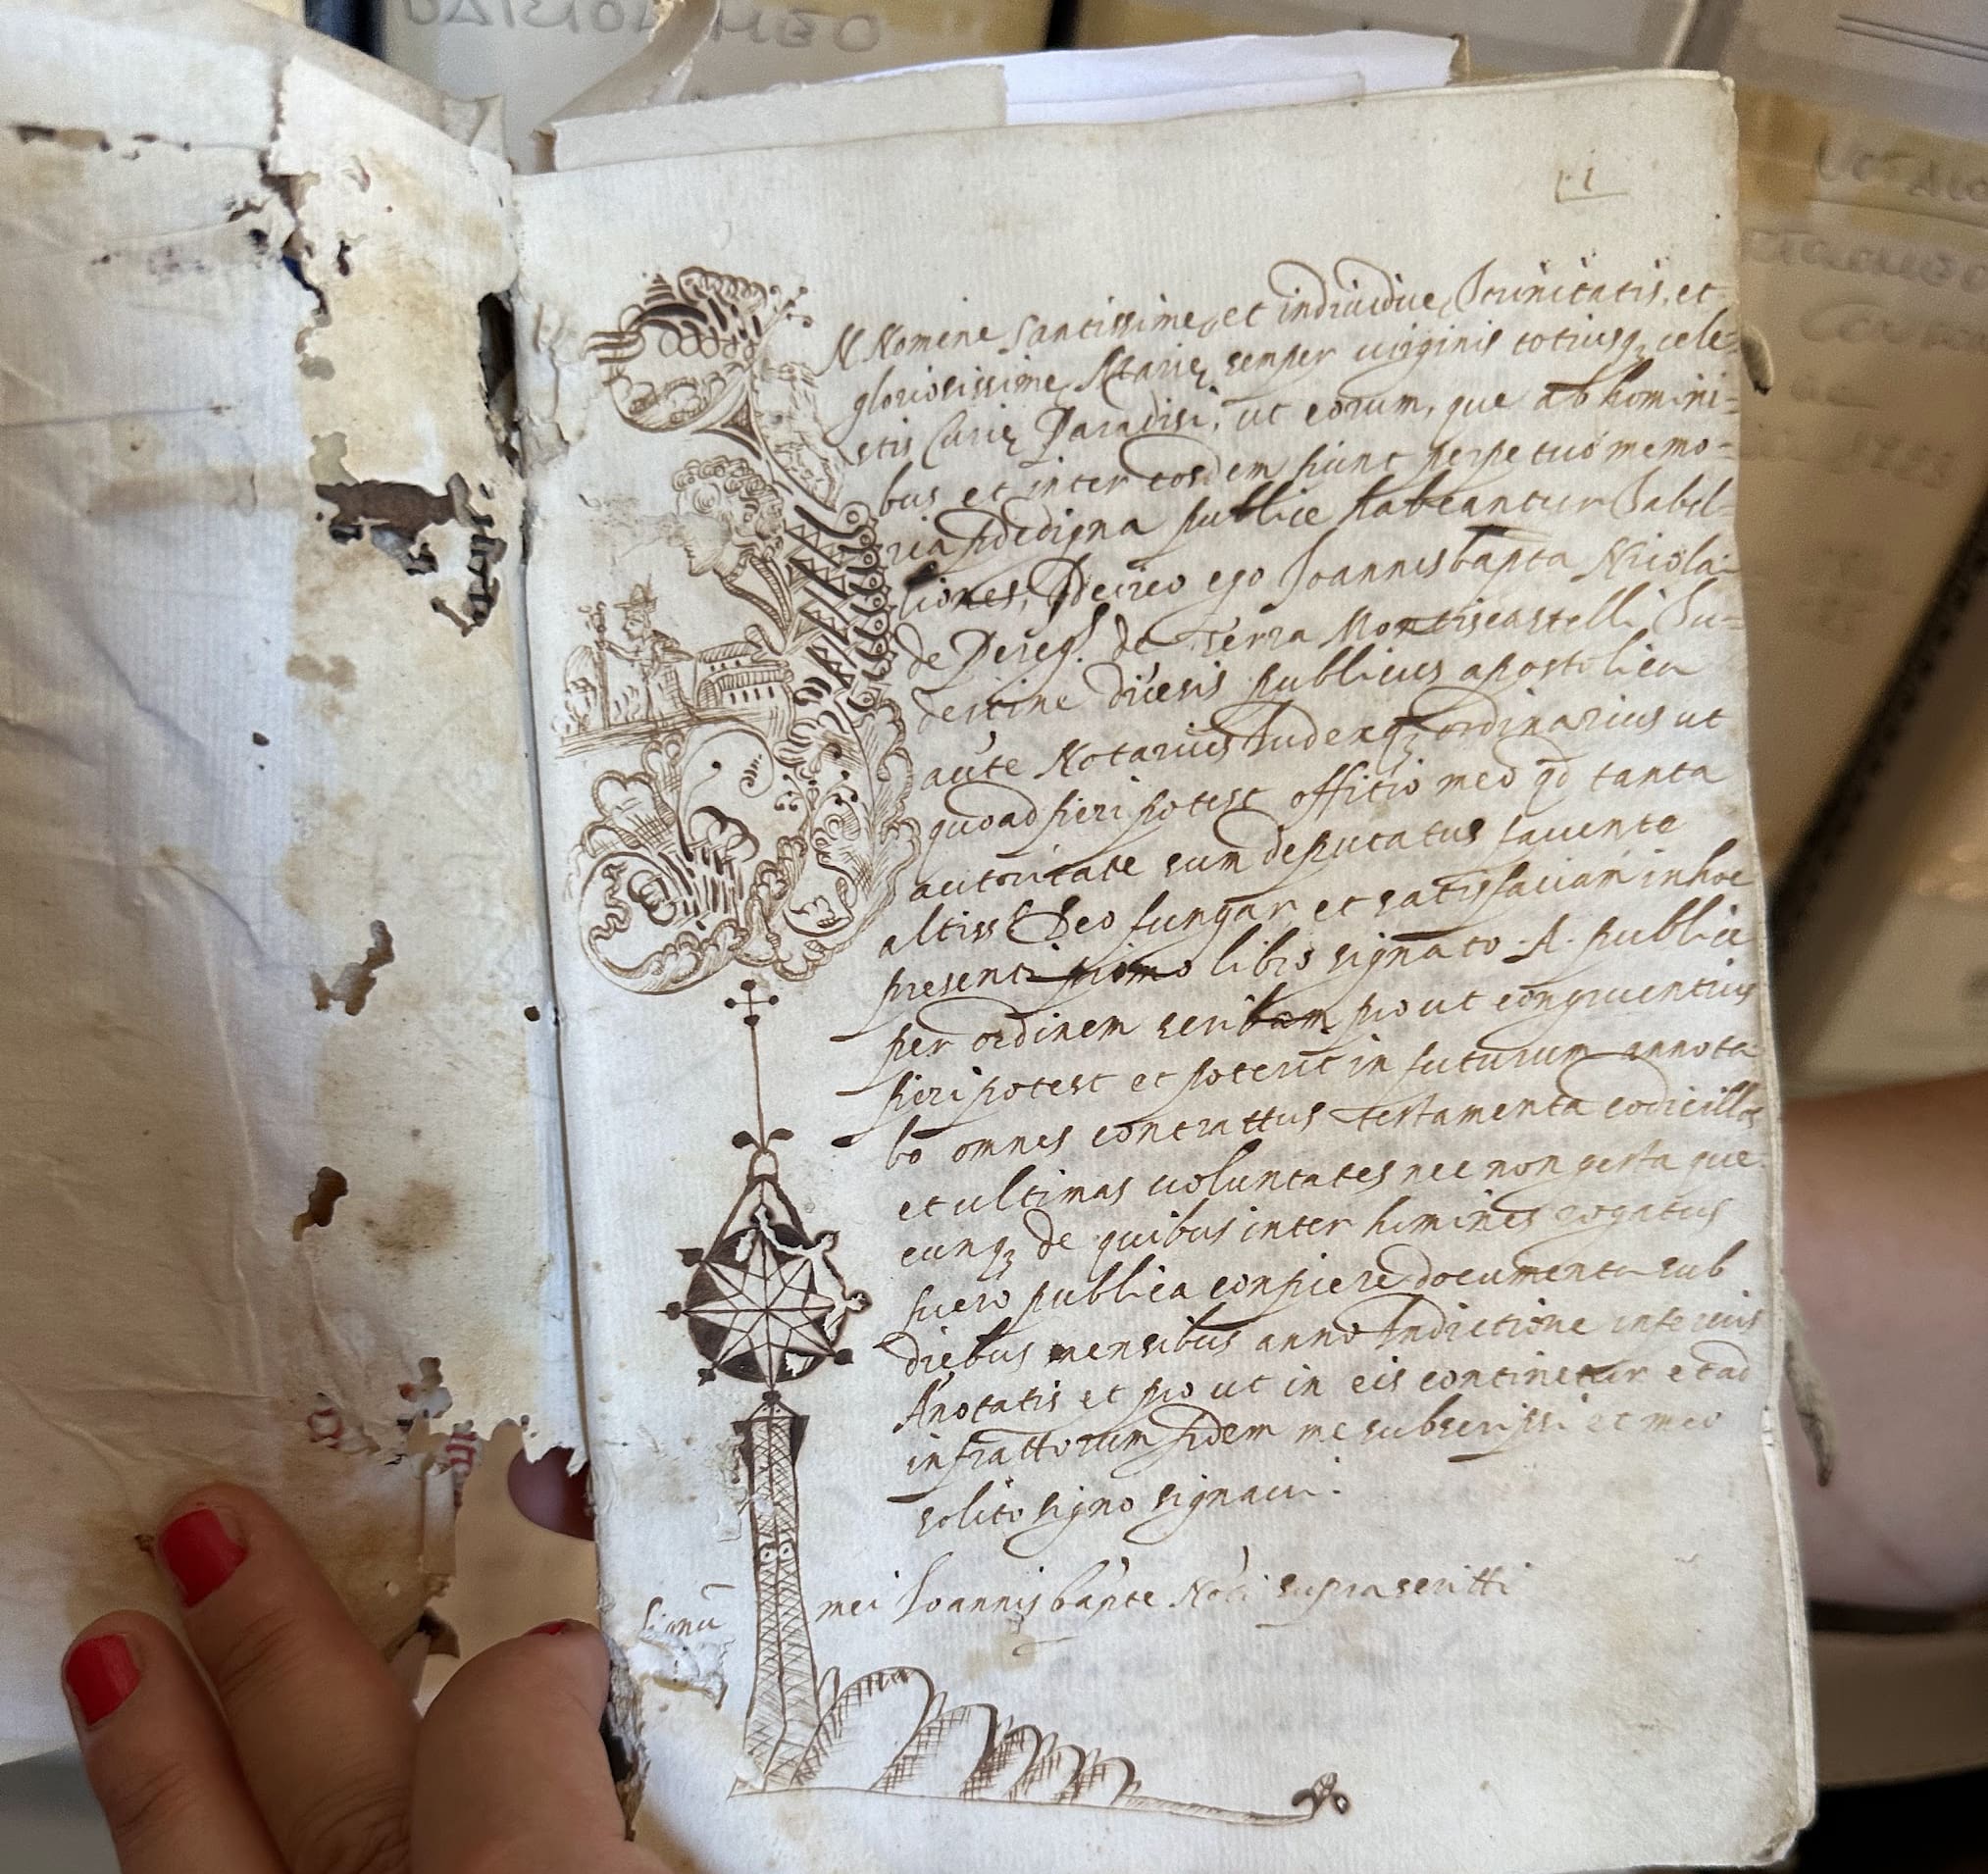 1
IN Nomine Santissime, et indiuidue, Trinitatis, et
gloriosissime Marie semper uirginis totiusq; cele-
stis Curie Paradisi, ut eorum, que ab homini-
bus et inter eosdem fiunt perpetuo memo-
ria fidedigna publice habeantur Tabel-
liones, Idcirco ego Joannisbapta Nicolai
de Pereg. de Terra Montiscastelli Tu-
dertine diecesis publicus apostolica
aucte Notarius Judexq; ordinarius ut
quoad fieri potest offitio meo qd tanta
autoritate sum deputatus fauente
altiss Deo fungar et satisfaciam in hoc
presenti primo libro signato .A. publice
per ordinem scribam prout congruentius
fieri potest et poterit in futurum annota
bo omnes contrattus testamenta codicillos
et ultimas uoluntates nec non gesta que
cunq; de quibus inter homines rogatus
fuero publica conficere documenta sub
diebus mensibus anno Indictione inferius
Anotatis et prout in eis continetur et ad
infrattorum fidem me subscripsi et meo
solito signo signaui.
Signu mei Joannisbapte Noti suprascritti